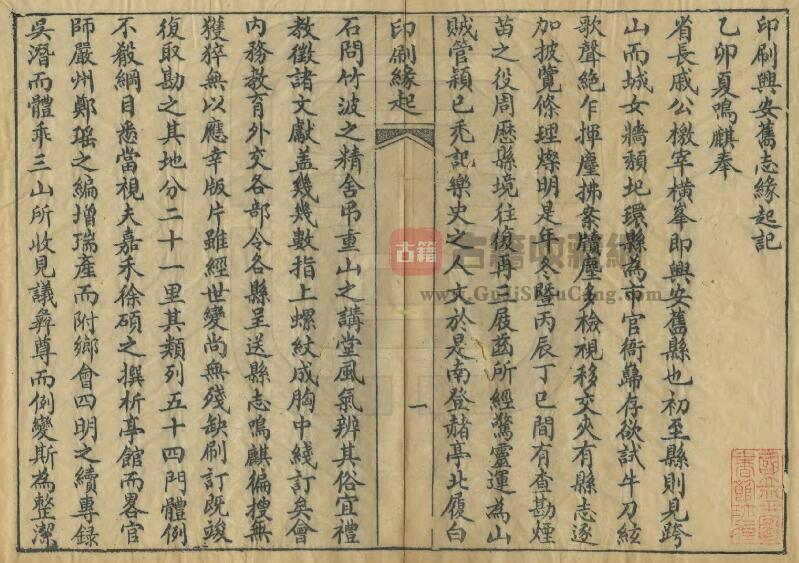 印刷興安舊志緣起記
乙卯夏鳴麒奉
省長戚公檄宰橫峯即興安舊縣也初至縣則見跨
山而城女牆頹圮環縣為市官衙巋存欲試牛刀絃
歌聲絕乍揮塵拂案牘塵多檢視移交夾有縣志逐
加披覽條理燦明是年冬暨丙辰丁巳間有查勘煙
苗之役周歷縣境往復再三屐齒所經驚靈運為山
賊管穎已禿記樂史之人文於是南登赭亭北履白
印刷緣起
一
石問竹波之精舍弔重山之講堂風氣辨其俗宜禮
教徵諸文獻盖幾幾數指上螺紋成胸中綫訂矣會
內務教育外交各部令各縣呈送縣志鳴麒徧搜無
獲猝無以應幸版片雖經世變尚無殘缺刷訂既竣
復取勘之其地分二十一里其類列五十四門體例
不殺綱目悉當視夫嘉禾徐碩之撰析亭館而畧官
師嚴州鄭瑶之編增瑞產而附鄉會四明之續專錄
吳潛而體乖三山所收見議彝尊而例變斯為整潔
古籍
古籍收藏網
www.GujiShouCang.com